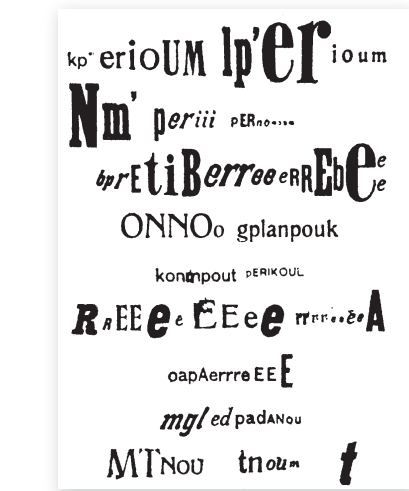 kp'erioUM lp'er ioum
Nm' periii pERno
bprEtiBerreeeRREbEee
ONNOo gplanpouk
konmpout PERIKOUL
RrEEeeEEeerrreeA
oapAerrreEEE
mgl ed padANou
MTNou tnoum t